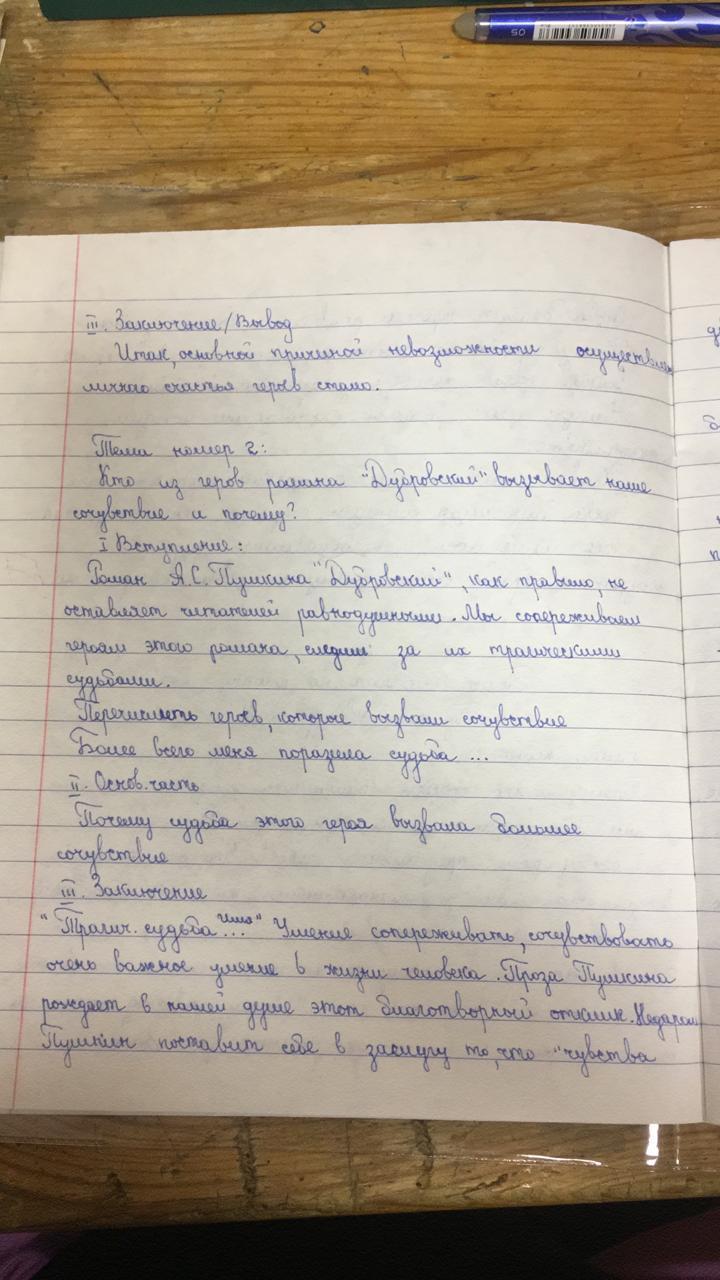 III. Заключение/Вывод
Итак, основной причиной невозможности осуществления
личного счастья героев стало.
Тема номер 2:
Кто из геров романа "Дубровский" вызывает наше
сочувствие и почему?
I Вступление:
Роман А.С. Пушкина "Дубровский", как правило, не
оставляет читателей равнодушными. Мы сопереживаем
героям этого романа, следим за их трагическими
судьбами.
Перечислить героев, которые вызвали сочувствие
Более всего меня поразила судьба ...
II. Основ. часть
Почему судьба этого героя вызвала большее
сочувствие
III. Заключение
"Трагич. судьба имя..." Умение сопереживать, сочувствовать
очень важное умение в жизни человека. Проза Пушкина
рождает в нашей душе этот благотворный отклик. Недаром
Пушкин поставит себе в заслугу то, что "чувства
05